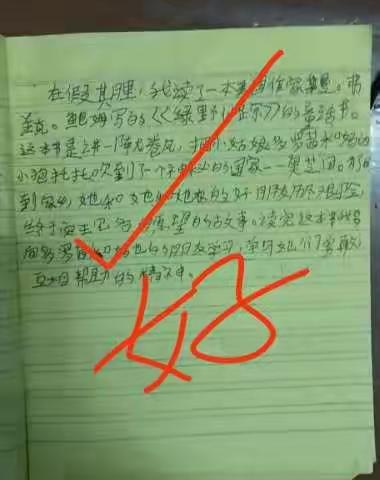 在假其里,我读了一本美国作家莱曼。弗
兰克。鲍姆写的《《绿野仙踪》》的童话书。
这本书是讲一阵龙卷风,把小姑娘多萝茜和她的
小狗托托吹到了一个神秘的国家一奥芝国。为了回
到家乡,她和 她的好朋友历险,
终于实现 愿望的故事。读完这本书我
多萝茜和她的朋友学习,学习她们勇敢
互相帮助的精神。
好